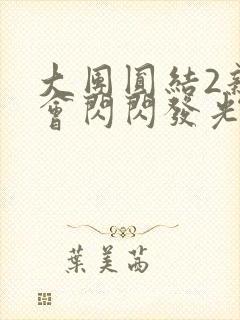 大團圓結2新
會閃閃發光
葉美茜